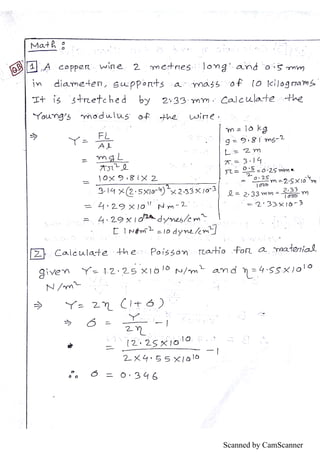 Math :
1 A copper wire 2 metres long and 0.5 mm
in diameter, supports a mass of 10 kilograms.
It is stretched by 2.33 mm. Calculate the
Young's modulus of the wire.
⇒ Y = FL / Al
= mgL / πr²l
= 10 × 9.81 × 2 / 3.14 × (2.5×10⁻⁴)² × 2.33 × 10⁻³
= 4.29 × 10¹¹ N m⁻²
= 4.29 × 10¹² dynes/cm²
[ 1 N/m² = 10 dyne/cm²]
m = 10 kg
g = 9.81 ms⁻²
L = 2 m
π = 3.14
r = 0.5/2 = 0.25 mm
= 0.25/1000 m = 2.5×10⁻⁴ m
l = 2.33 mm = 2.33/1000 m
= 2.33 × 10⁻³
2 Calculate the Poisson ratio for a material
given Y = 12.25 × 10¹⁰ N/m² and η = 4.55 × 10¹⁰
N/m²
⇒ Y = 2η (1+σ)
⇒ σ = Y / 2η − 1
= 12.25 × 10¹⁰ / 2 × 4.55 × 10¹⁰ − 1
∴ σ = 0.346
Scanned by CamScanner